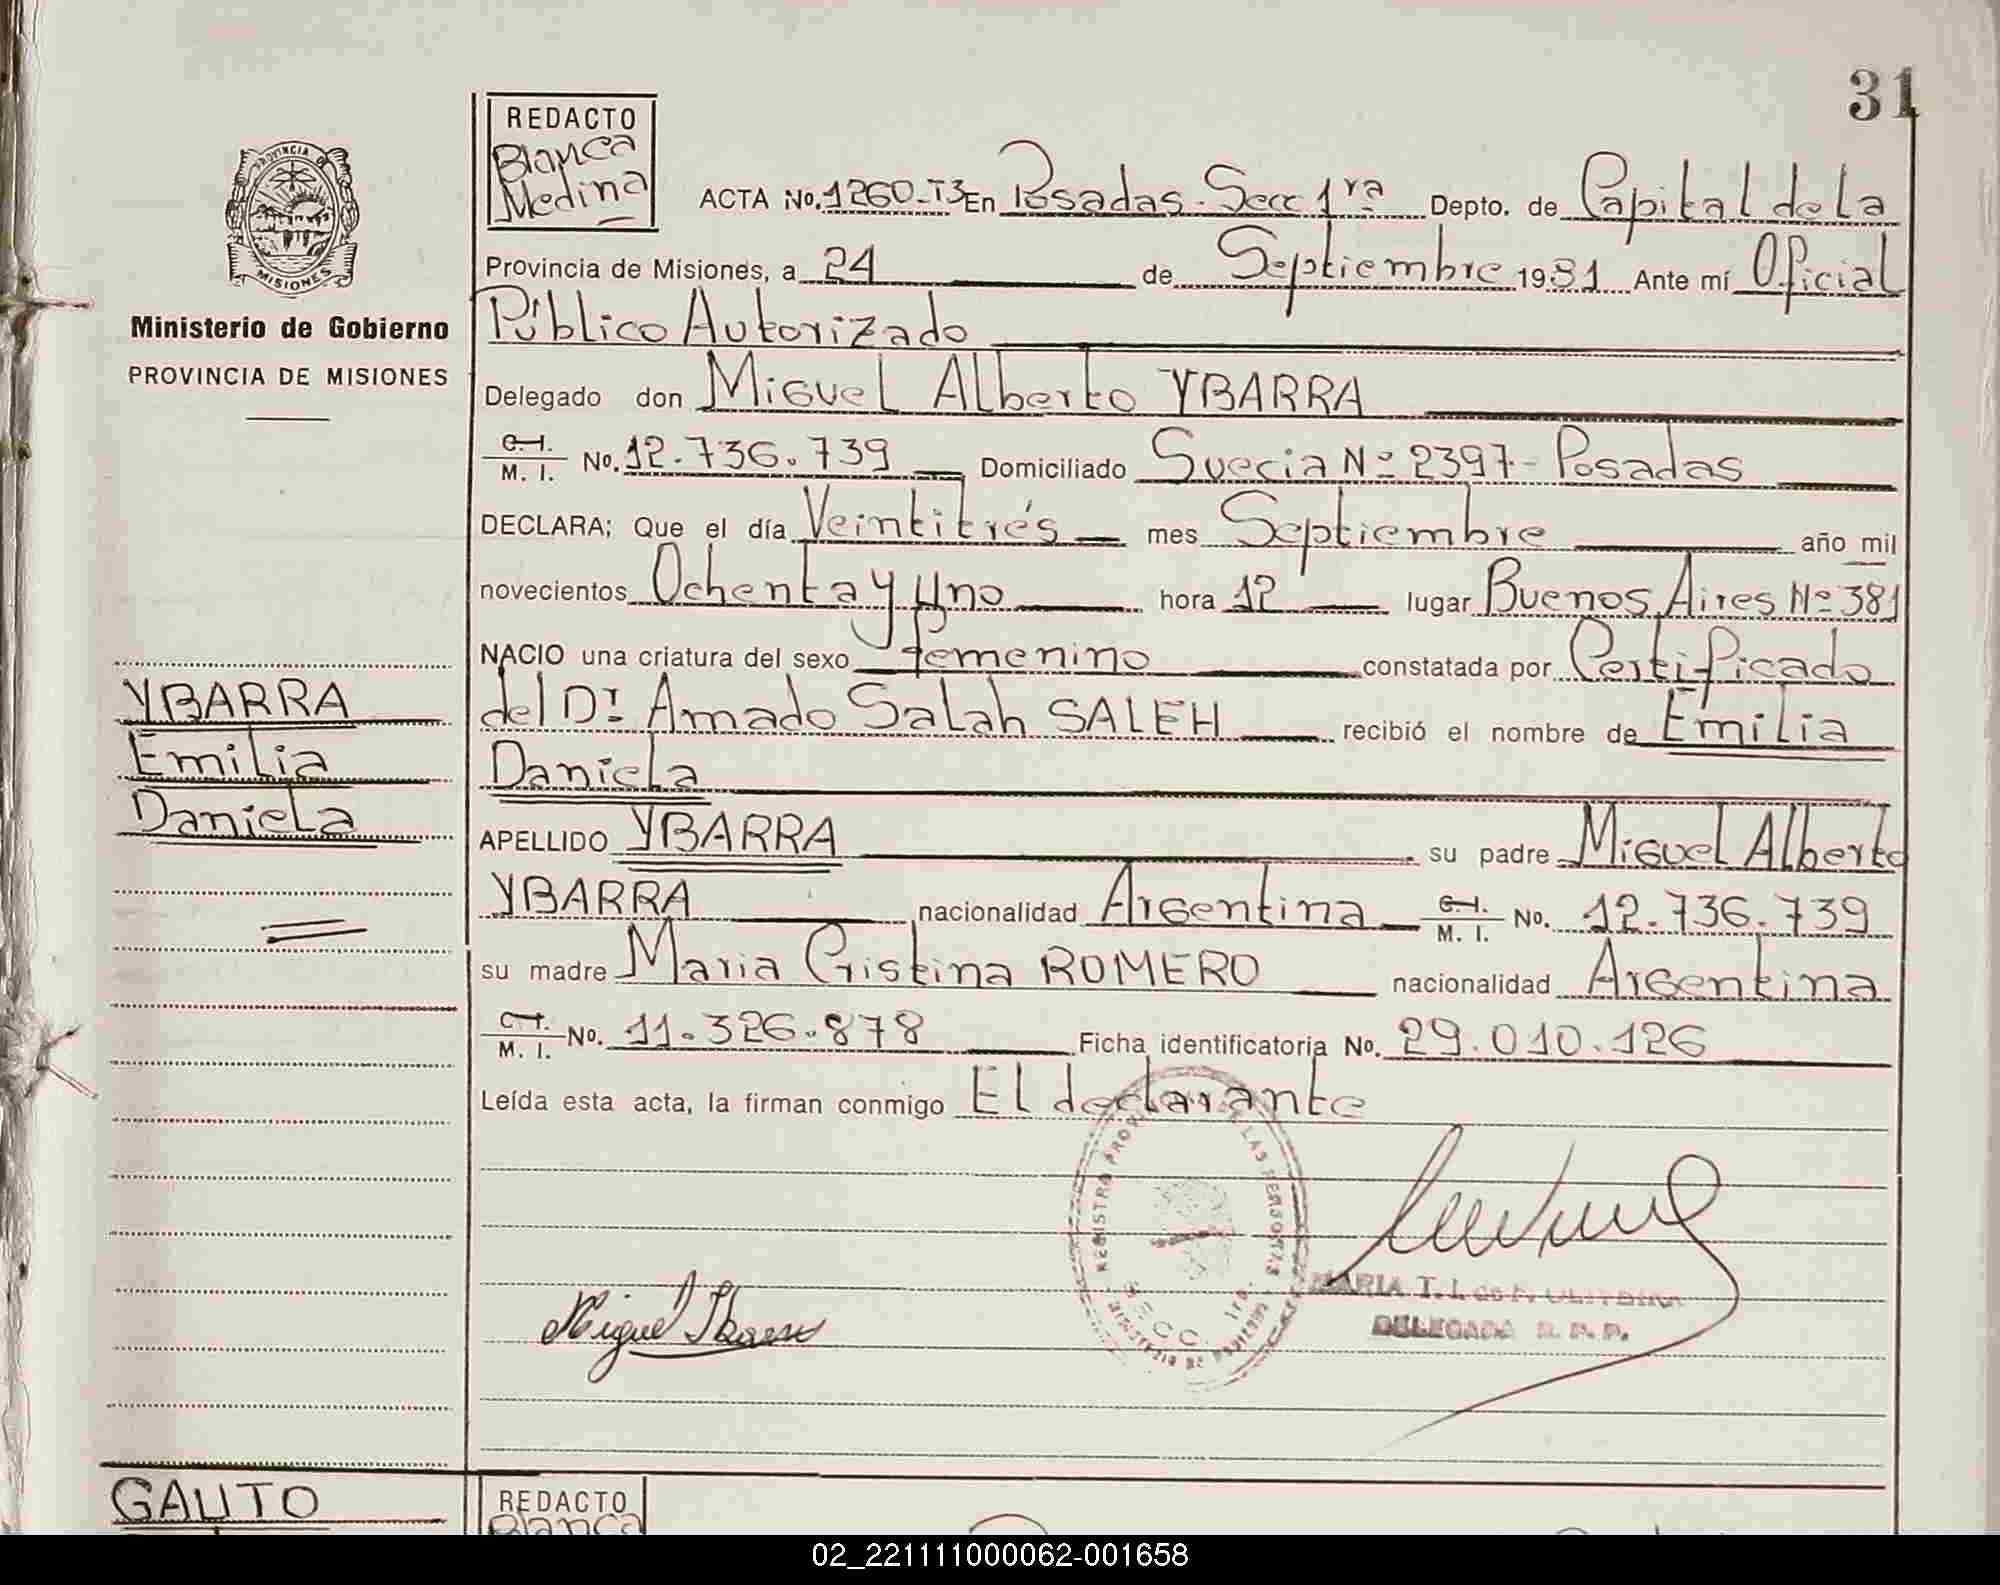 31
REDACTO
Blanca
Medina
PROVINCIA DE
MISIONES
Ministerio de Gobierno
PROVINCIA DE MISIONES
ACTA No. 1260-T3 En Posadas-Secc 1ra Depto. de Capital de la
Provincia de Misiones, a 24 de Septiembre 1981 Ante mí Oficial
Público Autorizado
Delegado don Miguel Alberto YBARRA
C.I.
M. I. No. 12.736.739 Domiciliado Suecia Nº 2397-Posadas
DECLARA; Que el día Veintitrés mes Septiembre año mil
novecientos Ochenta y Uno hora 12 lugar Buenos Aires Nº 381
NACIO una criatura del sexo femenino constatada por Certificado
del Dr. Amado Salah SALEH recibió el nombre de Emilia
Daniela
APELLIDO YBARRA su padre Miguel Alberto
YBARRA nacionalidad Argentina C.I. M. I. No. 12.736.739
su madre Maria Cristina ROMERO nacionalidad Argentina
C.I.
M. I. No. 11.326.878 Ficha identificatoria No. 29.010.126
Leída esta acta, la firman conmigo El declarante
YBARRA
Emilia
Daniela
REGISTRO PROV. LAS PERSONAS
SECC. 1ra.
MINISTERIO DE GOBIERNO
Miguel Ibarra
MARIA T. I. de
DELEGADA R. P. P.
GAUTO
REDACTO
Blanca
02_221111000062-001658